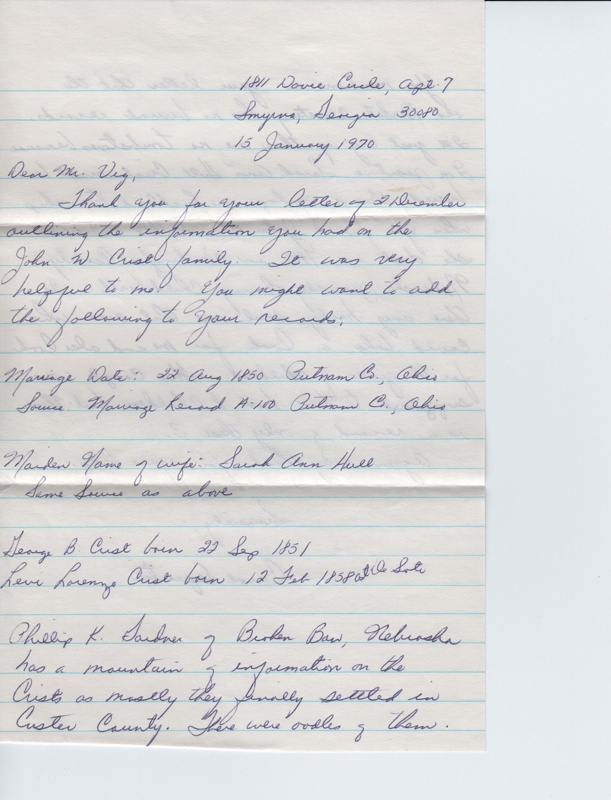 1811 Dovie Circle, Apt. 7
Smyrna, Georgia 30080
15 January 1970
Dear Mr. Vig,
Thank you for your letter of 2 December
outlining the information you had on the
John W Crist family. It was very
helpful to me. You might want to add
the following to your records.
Marriage Date: 22 Aug 1850 Putnam Co., Ohio
Source Marriage Record A-100 Putnam C., Ohio
Maiden Name of wife: Sarah Ann Hull
Same Source as above
George B. Crist born 22 Sep 1851
Levi Lorenzo Crist born 12 Feb 1858 at De Soto
Phillip K. Gardner of Broken Bow, Nebraska
has a mountain of information on the
Crists as mostly they finally settled in
Custer County. There were oodles of them.